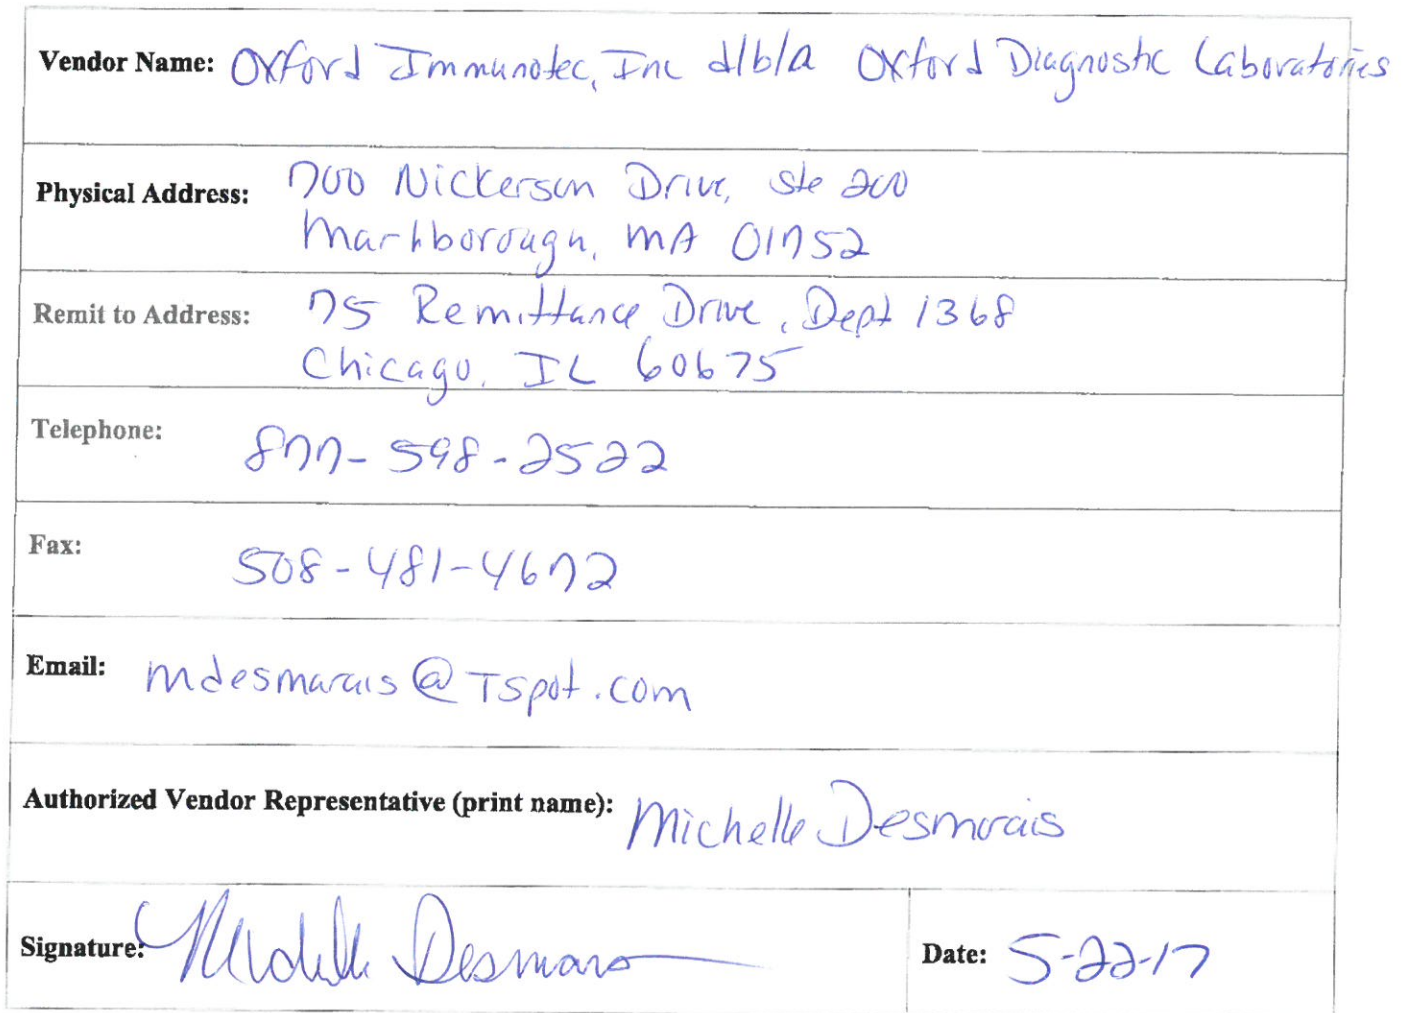 Vendor Name: Oxford Immunotec, Inc d/b/a Oxford Diagnostic Laboratories
Physical Address: 700 Nickerson Drive, Ste 200
Marlborough, MA 01752
Remit to Address: 75 Remittance Drive, Dept 1368
Chicago, IL 60675
Telephone: 877-598-2522
Fax: 508-481-4672
Email: mdesmarais@Tspot.com
Authorized Vendor Representative (print name): Michelle Desmarais
Signature: Michelle Desmarais Date: 5-22-17